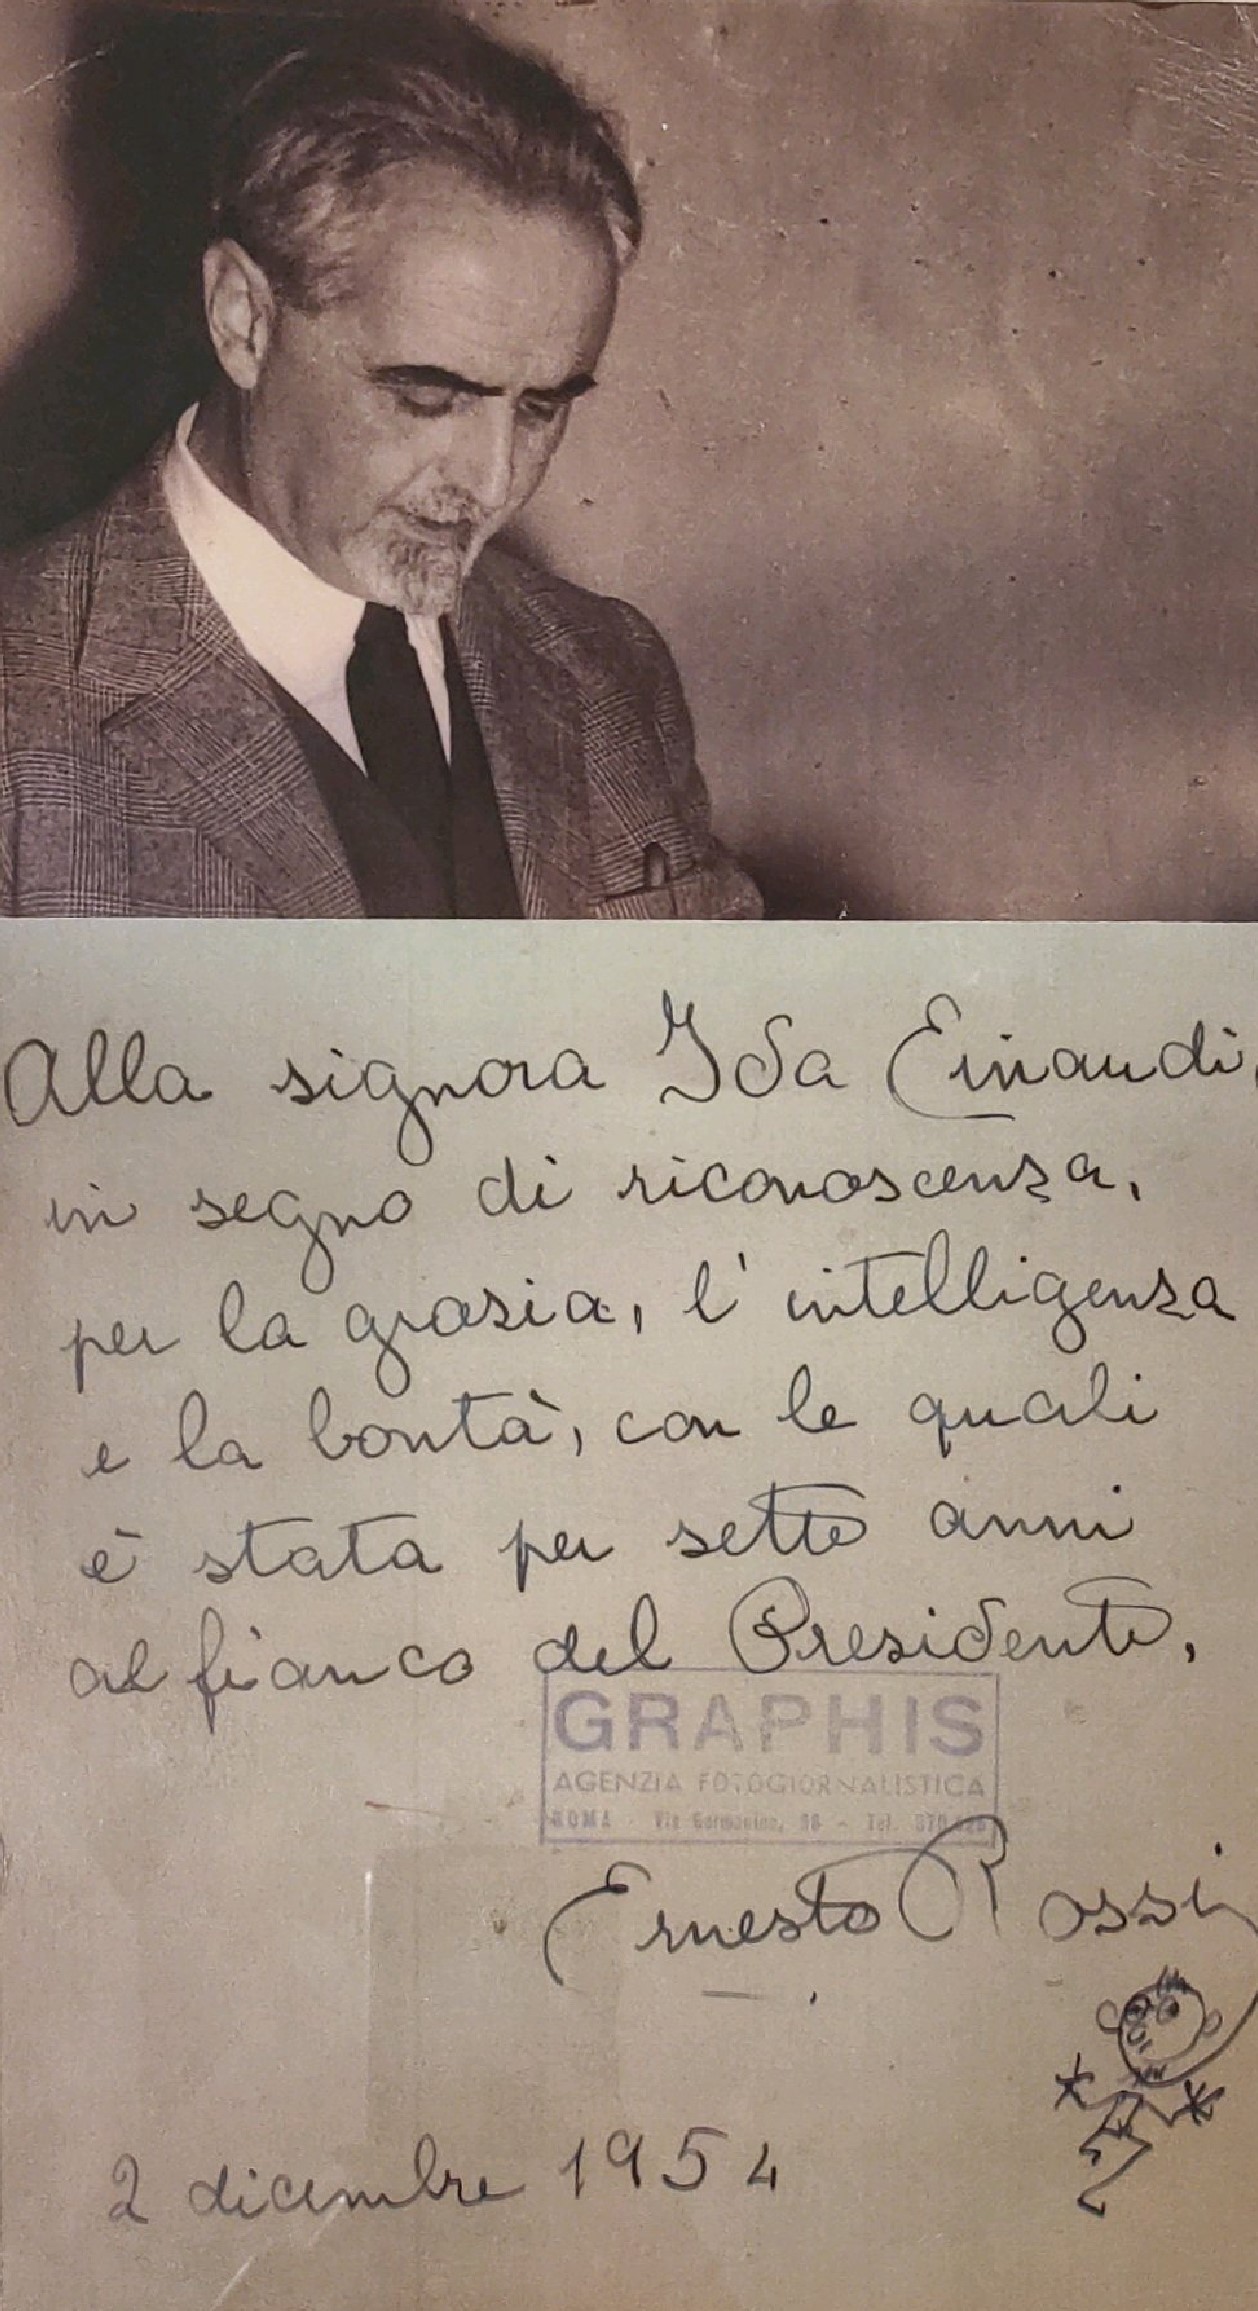 Alla signora Ida Einaudi,
in segno di riconoscenza,
per la grazia, l'intelligenza
e la bontà, con le quali
è stata per sette anni
al fianco del Presidente,
GRAPHIS
AGENZIA FOTOGIORNALISTICA
ROMA - Via Germanico, - Tel.
Ernesto Rossi
2 dicembre 1954